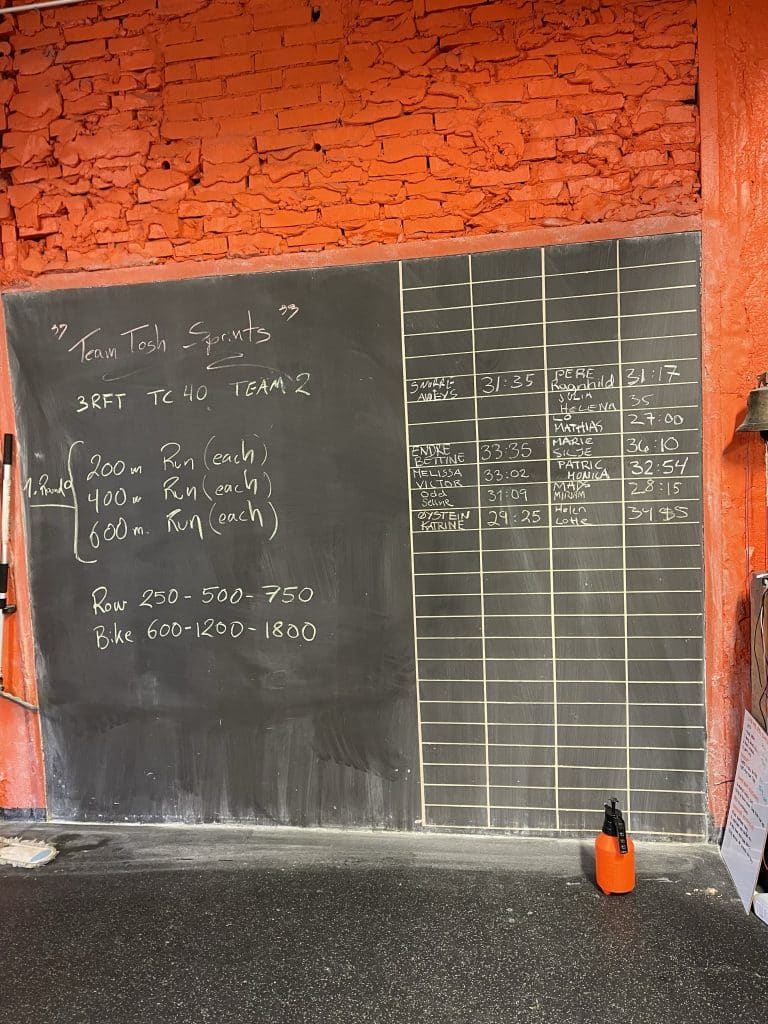 "Team Tosh Sprints"
3RFT TC 40 TEAM 2
1. Round
200m Run (each)
400m Run (each)
600m. Run (each)
Row 250 - 500 - 750
Bike 600 - 1200 - 1800
31:35
ENDRE
BETTINE 33:35
MELISSA
VICTOR 33:02
Odd
Seline 31:09
ØYSTEIN
KATRINE 29:25
PERE
Ragnhild 31:17
JULIA
HELENA 35
LO
MATHIAS 27:00
MARIE
SILJE 36:10
PATRIC
MONICA 32:54
MADS
Miriam 28:15
Helen
Lotte